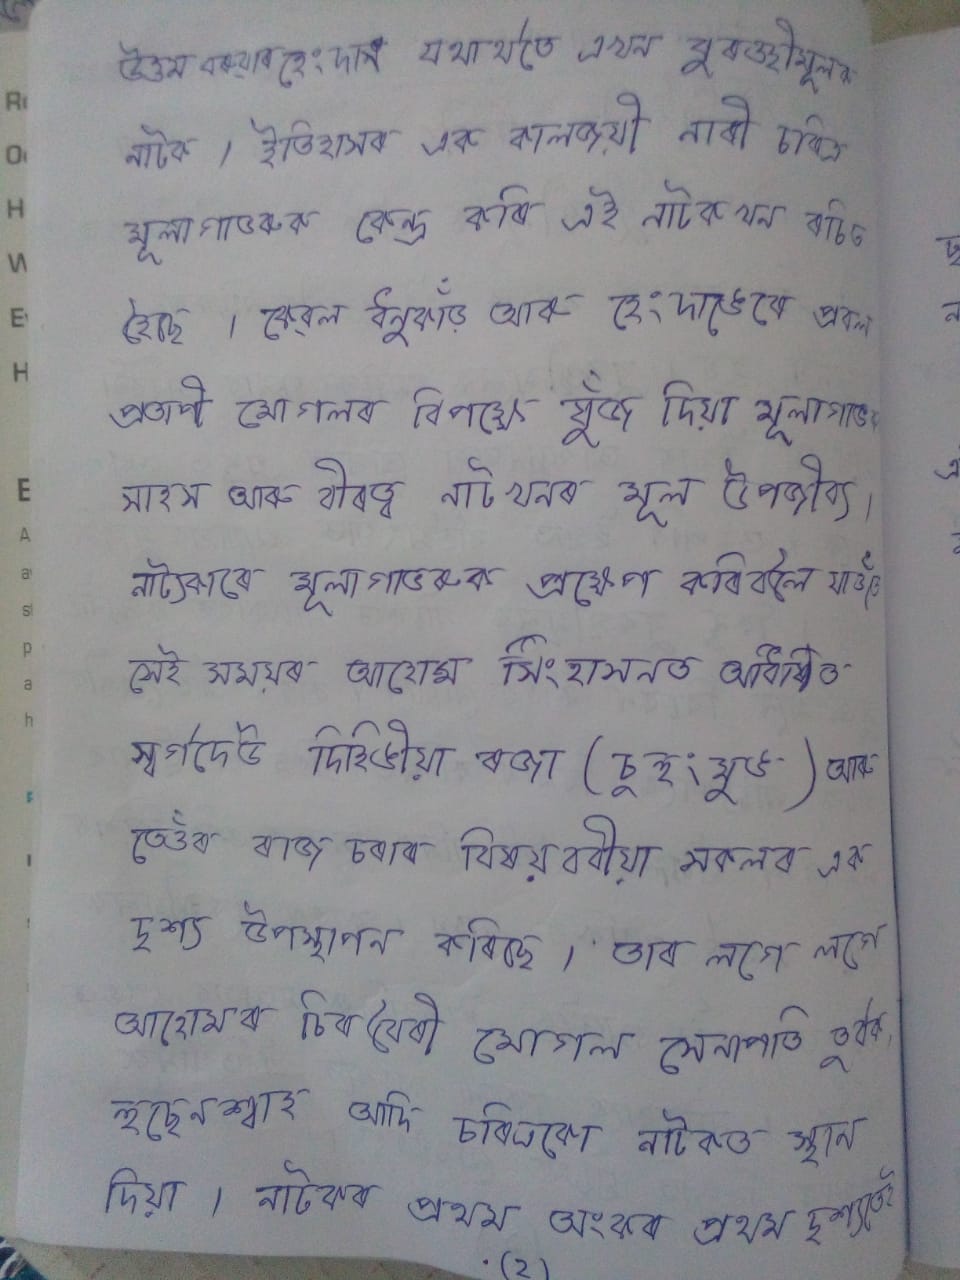 উত্তম বৰুৱাৰ হেংদান যথাৰ্থতে এখন বুৰঞ্জীমূলক
নাটক । ইতিহাসৰ এক কালজয়ী নাৰী চৰিত্ৰ
মূলাগাভৰুক কেন্দ্ৰ কৰি এই নাটকখন ৰচিত
হৈছে । কেৱল ধনুকাঁড় আৰু হেংদাঙেৰে প্ৰবল
প্ৰতাপী মোগলৰ বিপক্ষে যুঁজ দিয়া মূলাগাভৰুৰ
সাহস আৰু বীৰত্ব নাটখনৰ মূল উপজীব্য ।
নাট্যকাৰে মূলাগাভৰুক প্ৰক্ষেপ কৰিবলৈ যাওঁতে
সেই সময়ৰ আহোম সিংহাসনত অধিষ্ঠিত
স্বৰ্গদেউ দিহিঙীয়া ৰজা (চুহুংমুঙ) আৰু
তেওঁৰ ৰাজ চৰাৰ বিষয়ববীয়া সকলৰ এক
দৃশ্য উপস্থাপন কৰিছে । তাৰ লগে লগে
আহোমৰ চিৰবৈৰী মোগল সেনাপতি তুৰ্বক,
হুছেনশ্বাহ আদি চৰিত্ৰকো নাটকত স্থান
দিয়া । নাটকৰ প্ৰথম অংকৰ প্ৰথম দৃশ্যতেই
(2)
R
O
H
W
E
H
E
A
a
s
p
a
h